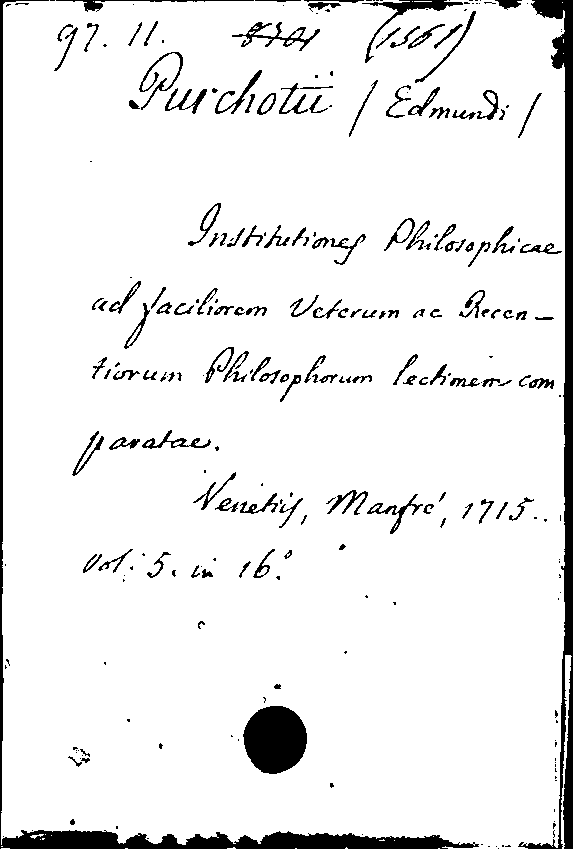 97. 11. 8301 (1561)
Purchotii / Edmundi /
Institutiones Philosophicae
ad faciliorem Veterum ac Recen-
tiorum Philosophorum lectionem com
paratae.
Venetiis, Manfré, 1715.
vol: 5. in 16°.